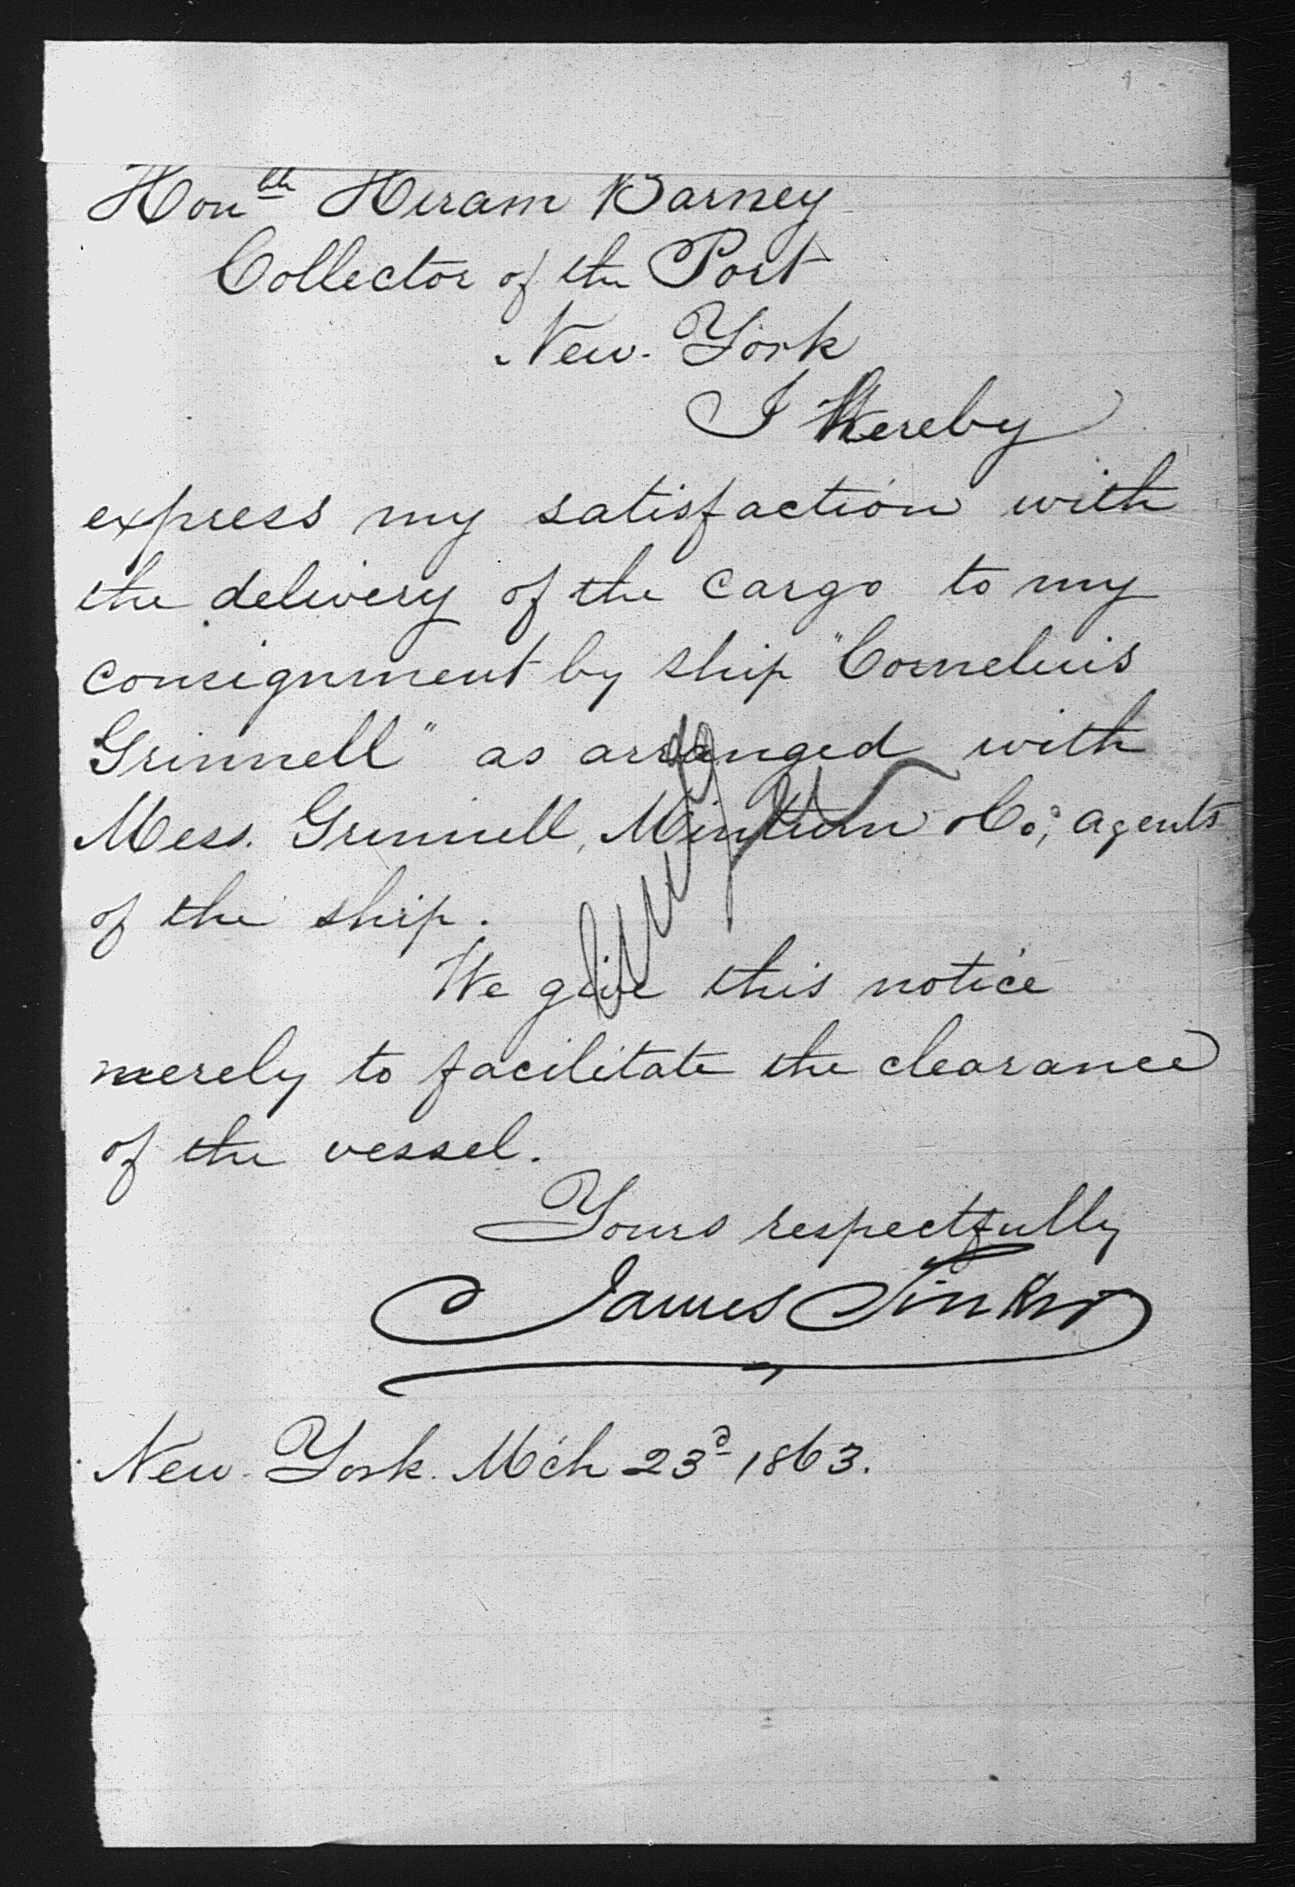 Honble Hiram Barney
Collector of the Port
New-York
I hereby
express my satisfaction with
the delivery of the cargo to my
consignment by ship "Cornelius
Grinnell" as arranged with
Mess. Grinnell, Minturn & Co; agents
of the ship.
We give this notice
merely to facilitate the clearance
of the vessel.
Yours respectfully
James Tinker
New-York. Mch 23d 1863.